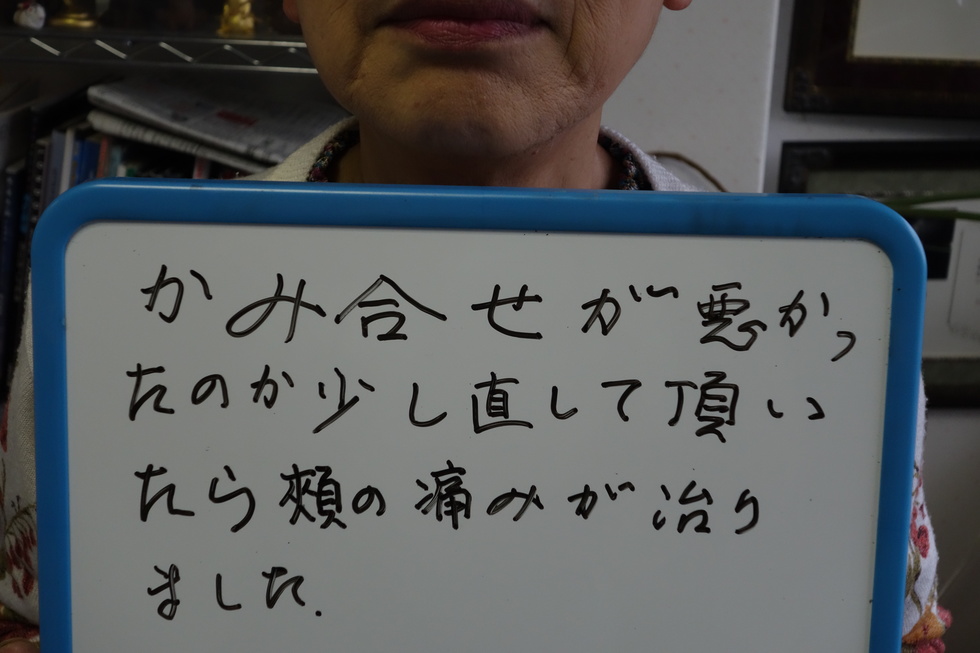 かみ合せが悪かっ
たのか少し直して頂い
たら頬の痛みが治り
ました.